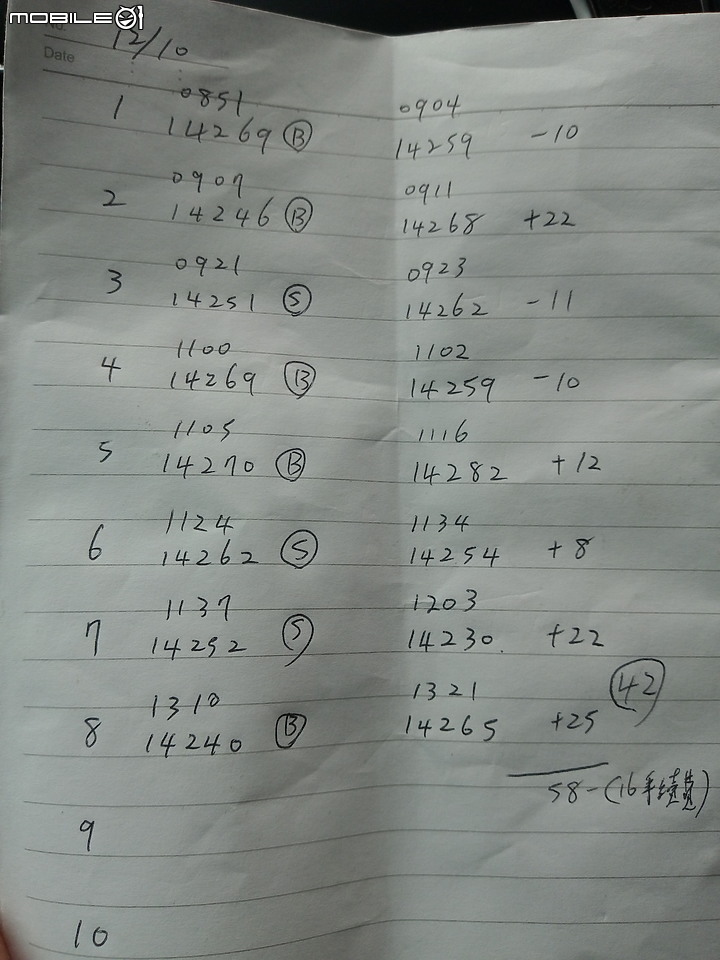 MOBILE01
No. 12/10
Date
0851 0904
1 14269 B 14259 -10
0907 0911
2 14246 B 14268 +22
0921 0923
3 14251 S 14262 -11
1100 1102
4 14269 B 14259 -10
1105 1116
5 14270 B 14282 +12
1124 1134
6 14262 S 14254 +8
1137 1203
7 14252 S 14230. +22
1310 1321 42
8 14240 B 14265 +25
58-(16手續費)
9
10